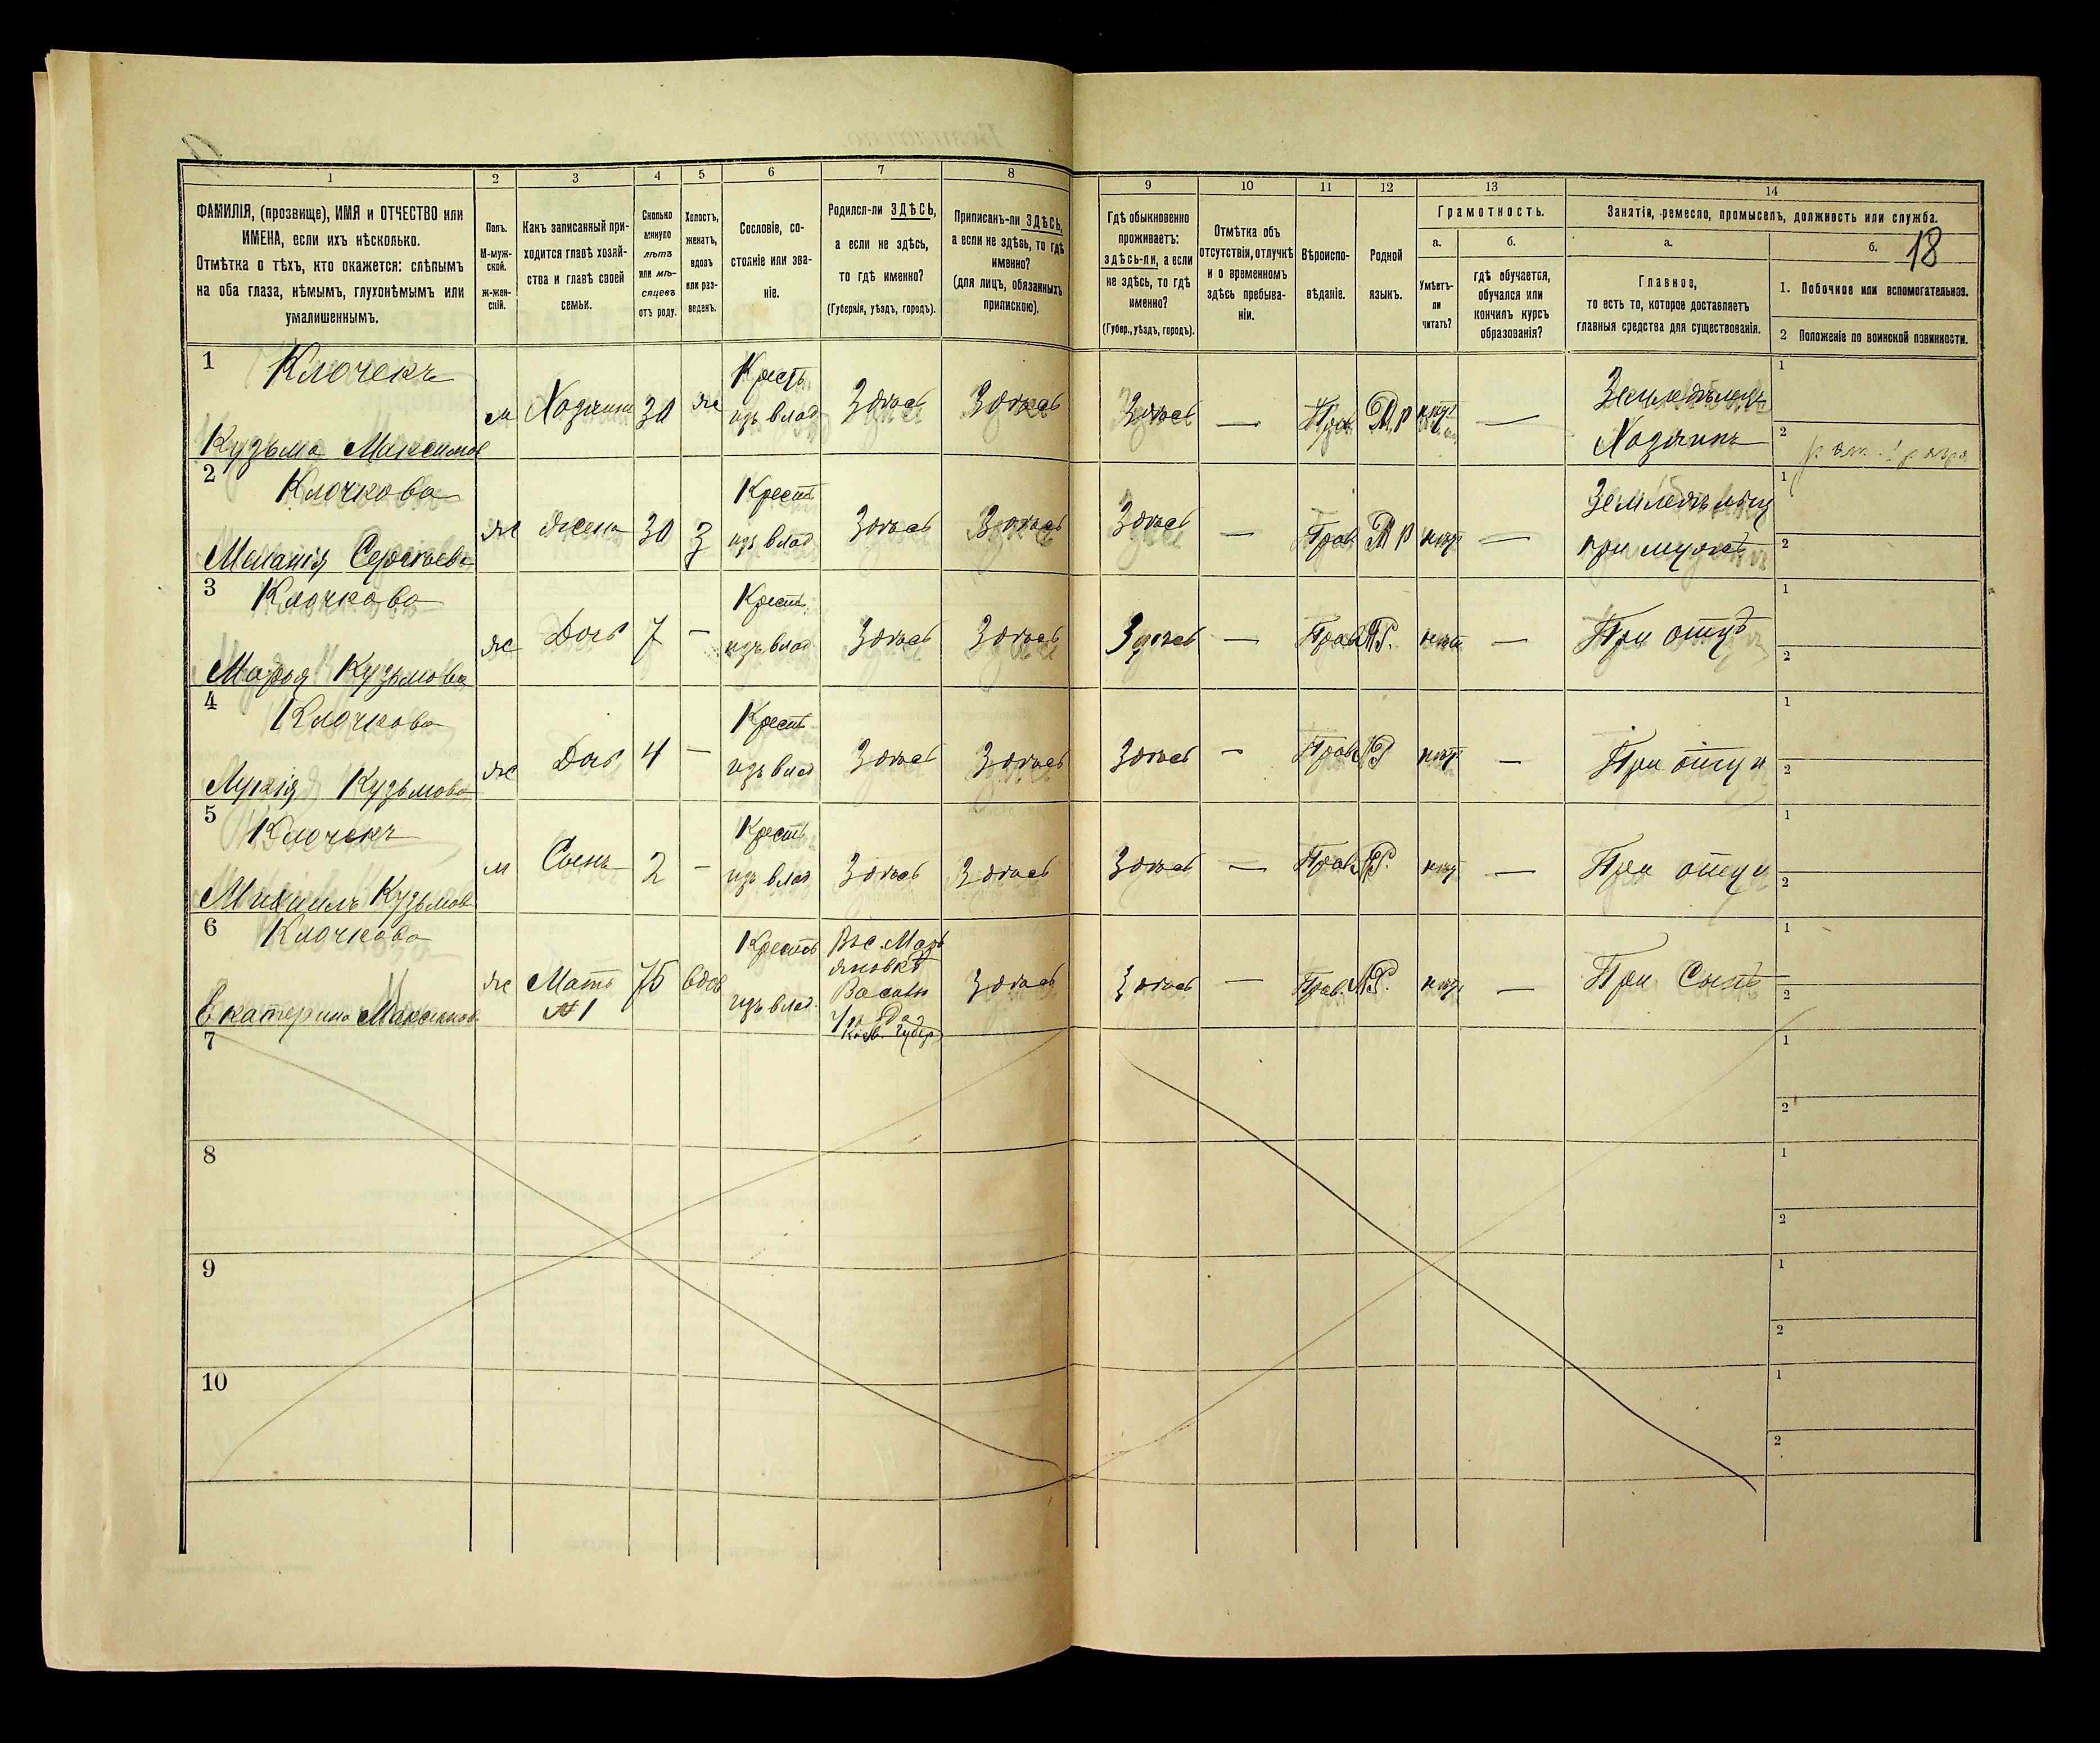 18
1 2 3 4 5 6 7 8 9 10 11 12 13 14
ФАМИЛІЯ, (прозвище), ИМЯ и ОТЧЕСТВО или
ИМЕНА, если ихъ нѣсколько.
Отмѣтка о тѣхъ, кто окажется: слѣпымъ
на оба глаза, нѣмымъ, глухонѣмымъ или
умалишеннымъ.
Полъ.
М-муж-
ской.
ж-жен-
скій.
Какъ записанный при-
ходится главѣ хозяй-
ства и главѣ своей
семьи.
Сколько
минуло
лѣтъ
или мѣ-
сяцевъ
отъ роду.
Холостъ,
женатъ,
вдовъ
или раз-
веденъ.
Сословіе, со-
стояніе или зва-
ніе.
Родился-ли ЗДѢСЬ,
а если не здѣсь,
то гдѣ именно?
(Губернія, уѣздъ, городъ).
Приписанъ-ли ЗДѢСЬ,
а если не здѣсь, то гдѣ
именно?
(для лицъ, обязанныхъ
припискою).
Гдѣ обыкновенно
проживаетъ:
здѣсь-ли, а если
не здѣсь, то гдѣ
именно?
(Губер., уѣздъ, городъ).
Отмѣтка объ
отсутствіи, отлучкѣ
и о временномъ
здѣсь пребыва-
ніи.
Вѣроиспо-
вѣданіе.
Родной
языкъ.
Грамотность.
а.
Умѣетъ-
ли
читать?
б.
гдѣ обучается,
обучался или
кончилъ курсъ
образованія?
Занятія, ремесло, промыселъ, должность или служба.
а.
Главное,
то есть то, которое доставляетъ
главныя средства для существованія.
б.
1. Побочное или вспомогательное.
2 Положеніе по воинской повинности.
1 Клочекъ
Кузьма Максимов
м Хозяинъ 30 же Крест изъ влад Здѣсь Здѣсь Здѣсь — Прав М Р нѣт — Земледѣлецъ Хозяинъ
1
2
2 Клочкова
Меланія Сергѣева
же жена 30 З Крест изъ влад Здѣсь Здѣсь Здѣсь — Прав М Р нѣт — Земледѣлец при мужѣ
1
2
3 Клочкова
Марья Кузьмова
же Дочь 7 — Крест изъ влад Здѣсь Здѣсь Здѣсь — Прав М Р. нѣт — При отцѣ
1
2
4 Клочкова
Лукія Кузьмова
же Дочь 4 — Крест изъ влад Здѣсь Здѣсь Здѣсь — Прав М Р нѣт — При отцѣ
1
2
5 Клочекъ
Михаилъ Кузьмов
м Сынъ 2 — Крест изъ влад Здѣсь Здѣсь Здѣсь — Прав М Р. нѣт — При отцѣ
1
2
6 Клочкова
Екатерина Максимов
же Мать №1 75 вдов Крест изъ влад. Здѣсь Здѣсь — Прав. М Р. нѣт — При Сынѣ
1
2
7
1
2
8
1
2
9
1
2
10
1
2